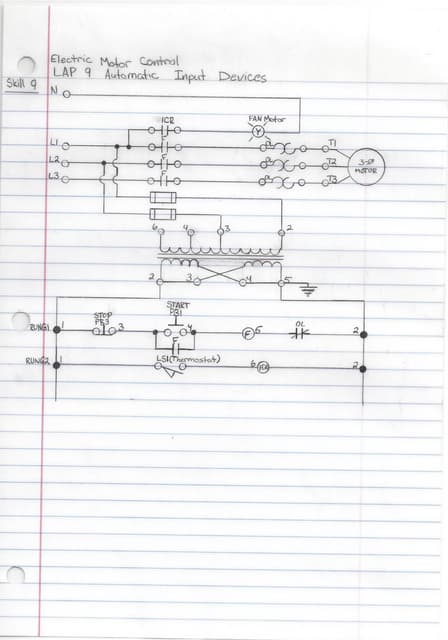 Electric Motor Control
LAP 9 Automatic Input Devices
Skill 9
N
1CR
FAN Motor
Y
L1 F T1
L2 F T2
3-Ø
MOTOR
L3 F T3
6 4 3 2
2 3 4 5
START
STOP PB1
PB3
RUNG1 1 3 4 F 5 OL 2
F
LS1(Thermostat)
RUNG2 1 6 1CR 2